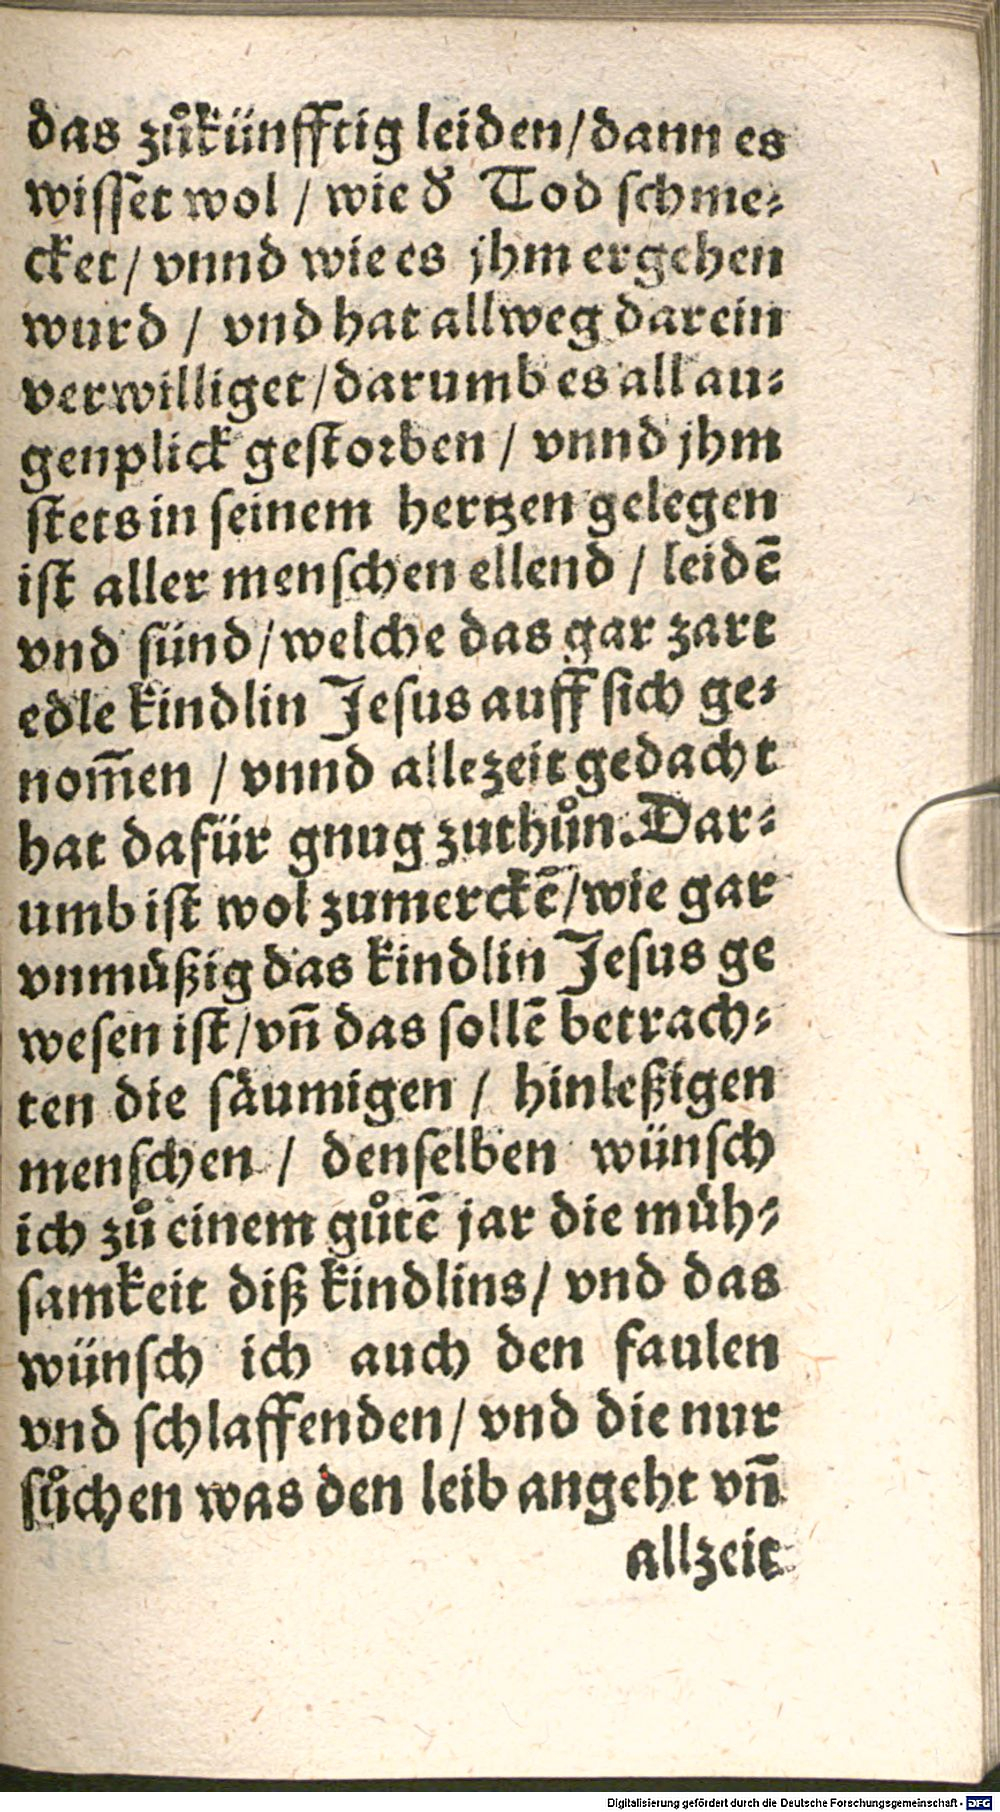 das zuͦkünfftig leiden/dann es
wisset wol / wie d̕ Tod schme⸗
cket/ vnnd wie es jhm ergehen
wurd / vnd hat allweg darein
verwilliget/darumb es all au⸗
genplick gestorben / vnnd jhm
stets in seinem hertzen gelegen
ist aller menschen ellend / leidē
vnd sünd/welche das gar zart
edle kindlin Jesus auff sich ge⸗
nom̄en / vnnd allezeit gedacht
hat dafür gnug zuthuͦn. Dar⸗
umb ist wol zumerckē/wie gar
vnmüßig das kindlin Jesus ge
wesen ist/vn̄ das sollē betrach⸗
ten die säumigen / hinleßigen
menschen / denselben wünsch
ich zuͦ einem guͦtē jar die müh⸗
samkeit diß kindlins/ vnd das
wünsch ich auch den faulen
vnd schlaffenden/ vnd die nur
suͦchen was den leib angeht vn̄
allzeit
Digitalisierung gefördert durch die Deutsche Forschungsgemeinschaft - DFG